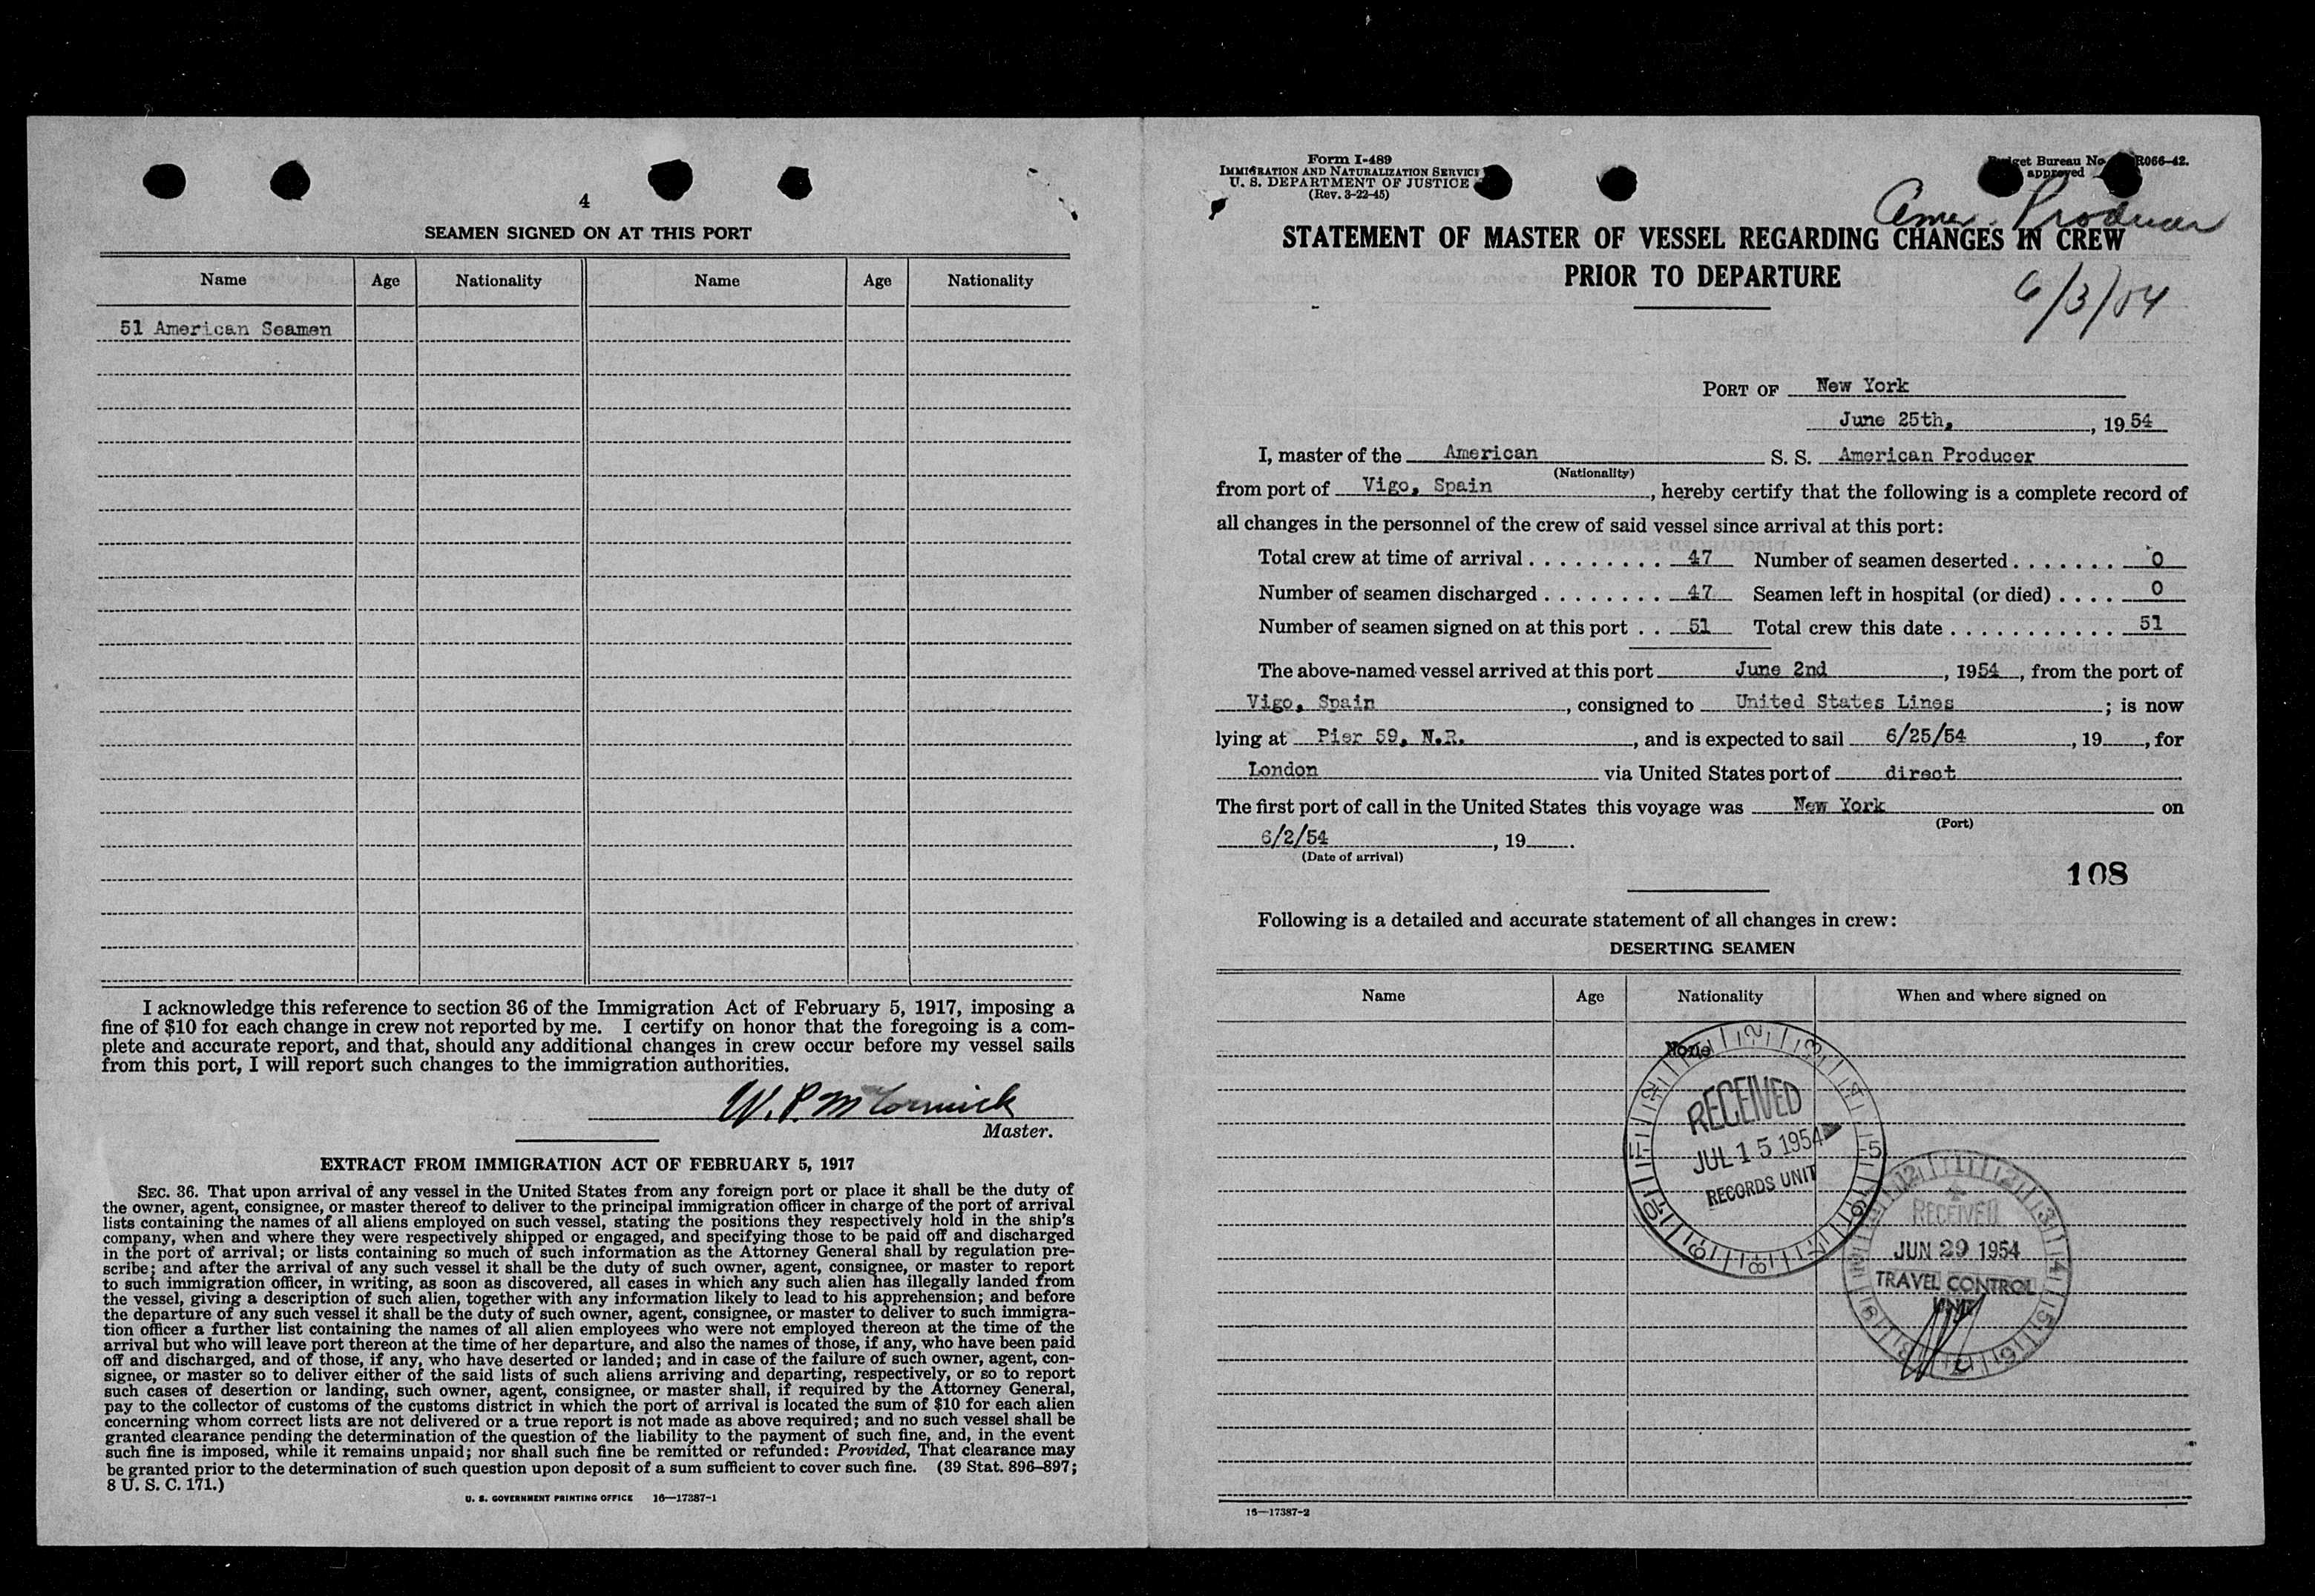 4
SEAMEN SIGNED ON AT THIS PORT
Name Age Nationality Name Age Nationality
51 American Seamen
I acknowledge this reference to section 36 of the Immigration Act of February 5, 1917, imposing a
fine of $10 for each change in crew not reported by me. I certify on honor that the foregoing is a com-
plete and accurate report, and that, should any additional changes in crew occur before my vessel sails
from this port, I will report such changes to the immigration authorities.
W. P. McCormick
Master.
EXTRACT FROM IMMIGRATION ACT OF FEBRUARY 5, 1917
SEC. 36. That upon arrival of any vessel in the United States from any foreign port or place it shall be the duty of
the owner, agent, consignee, or master thereof to deliver to the principal immigration officer in charge of the port of arrival
lists containing the names of all aliens employed on such vessel, stating the positions they respectively hold in the ship's
company, when and where they were respectively shipped or engaged, and specifying those to be paid off and discharged
in the port of arrival; or lists containing so much of such information as the Attorney General shall by regulation pre-
scribe; and after the arrival of any such vessel it shall be the duty of such owner, agent, consignee, or master to report
to such immigration officer, in writing, as soon as discovered, all cases in which any such alien has illegally landed from
the vessel, giving a description of such alien, together with any information likely to lead to his apprehension; and before
the departure of any such vessel it shall be the duty of such owner, agent, consignee, or master to deliver to such immigra-
tion officer a further list containing the names of all alien employees who were not employed thereon at the time of the
arrival but who will leave port thereon at the time of her departure, and also the names of those, if any, who have been paid
off and discharged, and of those, if any, who have deserted or landed; and in case of the failure of such owner, agent, con-
signee, or master so to deliver either of the said lists of such aliens arriving and departing, respectively, or so to report
such cases of desertion or landing, such owner, agent, consignee, or master shall, if required by the Attorney General,
pay to the collector of customs of the customs district in which the port of arrival is located the sum of $10 for each alien
concerning whom correct lists are not delivered or a true report is not made as above required; and no such vessel shall be
granted clearance pending the determination of the question of the liability to the payment of such fine, and, in the event
such fine is imposed, while it remains unpaid; nor shall such fine be remitted or refunded: Provided, That clearance may
be granted prior to the determination of such question upon deposit of a sum sufficient to cover such fine. (39 Stat. 896–897;
8 U. S. C. 171.)
U. S. GOVERNMENT PRINTING OFFICE 16—17387-1
Form I-489
IMMIGRATION AND NATURALIZATION SERVICE
U. S. DEPARTMENT OF JUSTICE
(Rev. 3-22-45)
Bureau No. R066–42.
approved
Amer. Producer
STATEMENT OF MASTER OF VESSEL REGARDING CHANGES IN CREW
PRIOR TO DEPARTURE
6/3/54
PORT OF New York
June 25th, , 19 54
I, master of the American S. S. American Producer
(Nationality)
from port of Vigo, Spain , hereby certify that the following is a complete record of
all changes in the personnel of the crew of said vessel since arrival at this port:
Total crew at time of arrival . . . . . . . . . 47 Number of seamen deserted . . . . . . . 0
Number of seamen discharged . . . . . . . . 47 Seamen left in hospital (or died) . . . . 0
Number of seamen signed on at this port . . 51 Total crew this date . . . . . . . . . . . . 51
The above-named vessel arrived at this port June 2nd , 1954 , from the port of
Vigo, Spain , consigned to United States Lines ; is now
lying at Pier 59, N.R. , and is expected to sail 6/25/54 , 19 , for
London via United States port of direct
The first port of call in the United States this voyage was New York on
(Port)
6/2/54 , 19 .
(Date of arrival)
108
Following is a detailed and accurate statement of all changes in crew:
DESERTING SEAMEN
Name Age Nationality When and where signed on
None
RECEIVED
JUL 15 1954
RECORDS UNIT
RECEIVED
JUN 29 1954
TRAVEL CONTROL
UNIT
16—17387-2